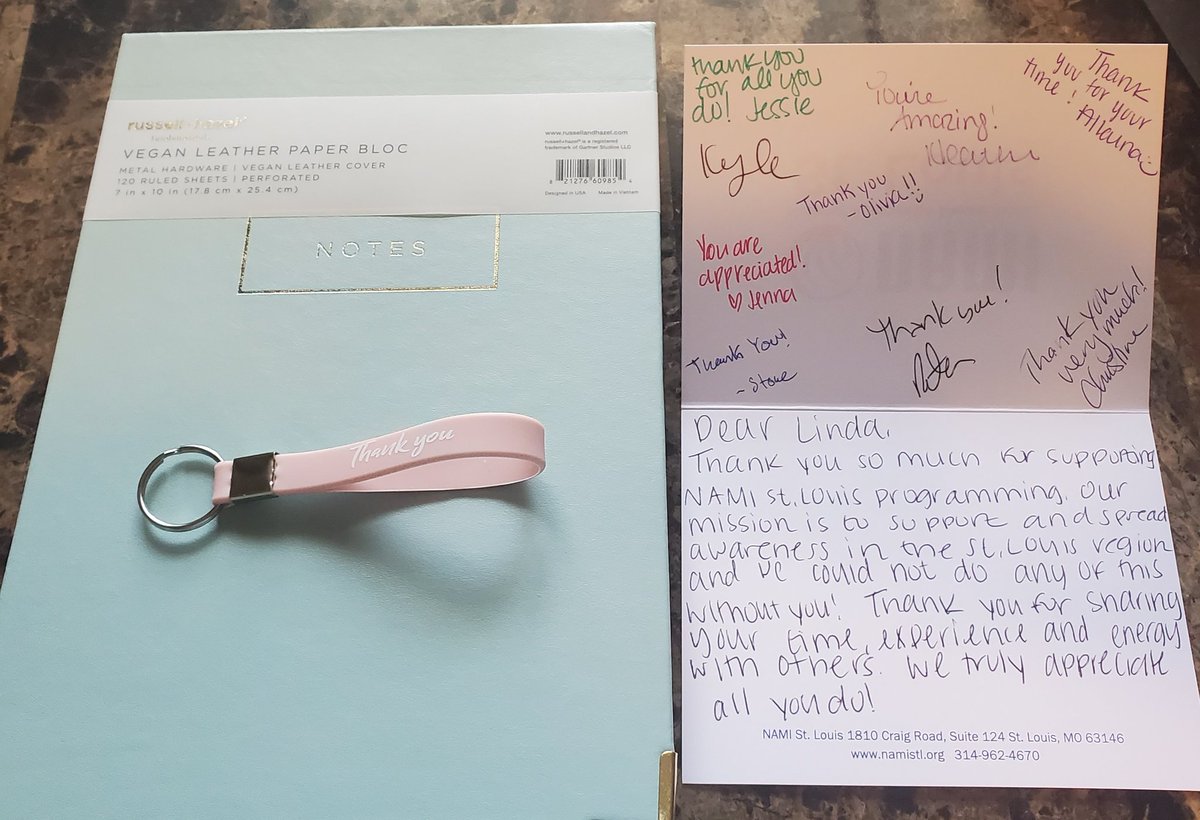 russell+hazel
VEGAN LEATHER PAPER BLOC
METAL HARDWARE | VEGAN LEATHER COVER
120 RULED SHEETS | PERFORATED
7 in x 10 in (17.8 cm x 25.4 cm)
www.russellandhazel.com
russell+hazel® is a registered
trademark of Gartner Studios LLC
8 21276 60985 4
Designed in USA Made in Vietnam
NOTES
Thank you
thank you
for all you
do! Jessie
You're
Amazing!
Heather
Thank
you for your
time!
Kyle
Thank you
-Olivia!!
You are
appreciated!
♡ Jenna
Thank you!
Thank you
very much!
Christine
Thank You!
Dear Linda,
Thank you so much for supporting
NAMI St. Louis programming. Our
mission is to support and spread
awareness in the St. Louis region
and we could not do any of this
without you! Thank you for sharing
your time, experience and energy
with others. We truly appreciate
all you do!
NAMI St. Louis 1810 Craig Road, Suite 124 St. Louis, MO 63146
www.namistl.org 314-962-4670